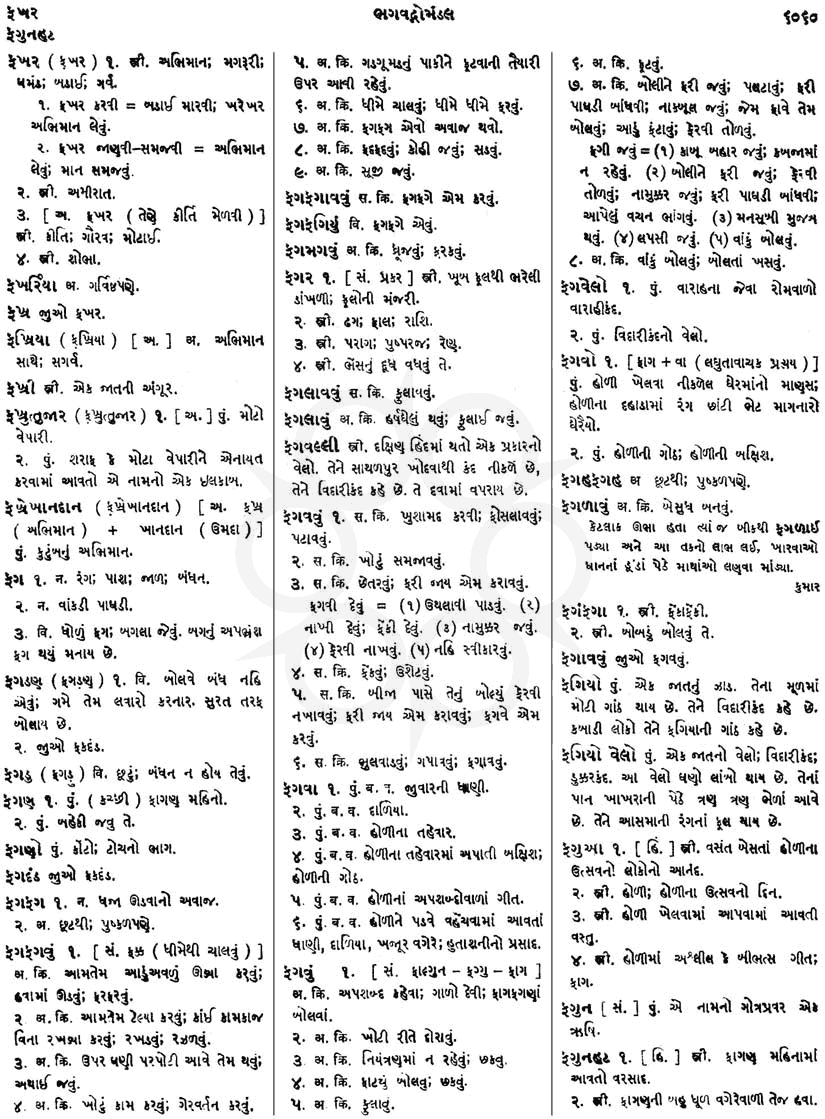 ફખર
ફગુનહટ
ભગવદ્ગોમંડલ
૬૦૬૦
ફખર ( ફ઼ખર ) ૧. સ્ત્રી. અભિમાન; મગરૂરી;
ઘમંડ; બડાઈ; ગર્વ.
૧. ફખર કરવી = બડાઈ મારવી; ખરેખર
અભિમાન લેવું.
૨. ફખર જાણવી–સમજવી = અભિમાન
લેવું; માન સમજવું.
૨. સ્ત્રી. અમીરાત.
૩. [ અ. ફખર ( તેણે કીર્તિ મેળવી ) ]
સ્ત્રી. કીર્તિ; ગૌરવ; મોટાઈ.
૪. સ્ત્રી. શોભા.
ફખરિયા અ. ગર્વિષ્ઠપણે.
ફખ્ર જુઓ ફખર.
ફખ્રિયા ( ફ઼ખ્રિયા ) [ અ. ] અ. અભિમાન
સાથે; સગર્વ.
ફખ્રી સ્ત્રી. એક જાતની અંગૂર.
ફખ્રુત્તુજાર ( ફ઼ખ્રુત્તુજાર ) ૧. [ અ. ] પું. મોટો
વેપારી.
૨. પું. શરાફ કે મોટા વેપારીને એનાયત
કરવામાં આવતો એ નામનો એક ઇલકાબ.
ફખ્રેખાનદાન ( ફ઼ખ્રેખાનદાન ) [ અ. ફખ્ર
( અભિમાન ) + ખાનદાન ( ઉમદા ) ]
પું. કુટુંબનું અભિમાન.
ફગ ૧. ન. રંગ; પાશ; જાળ; બંધન.
૨. ન. વાંકડી પાઘડી.
૩. વિ. ધોળું ફગ; બગલા જેવું. બગનું અપભ્રંશ
ફગ થયું મનાય છે.
ફગડણ ( ફગડ઼ણ ) ૧. વિ. બોલવે બંધ નહિ
એવું; ગમે તેમ લવારો કરનાર. સુરત તરફ
બોલાય છે.
૨. જુઓ ફકદંડ.
ફગડુ ( ફગડ઼ુ ) વિ. છૂટું; બંધન ન હોય તેવું.
ફગણ ૧. પું. ( કચ્છી ) ફાગણ મહિનો.
૨. પું. બહેકી જવું તે.
ફગણો પું. ફોંટો; ટોચનો ભાગ.
ફગદંડ જુઓ ફકદંડ.
ફગફગ ૧. ન. ધજા ઊડવાનો અવાજ.
૨. અ. છૂટથી; પુષ્કળપણે.
ફગફગવું ૧. [ સં. ફક્ક ( ધીમેથી ચાલવું ) ]
અ. ક્રિ. આમતેમ આડુંઅવળું ઊભા કરવું;
હવામાં ઊડવું; ફરફરવું.
૨ અ. ક્રિ. આમતેમ ટેલ્યા કરવું; કાંઈ કામકાજ
વિના રખડ્યા કરવું; રખડવું; રઝળવું.
૩. અ. ક્રિ. ઉપર ઘણી પરપોટી આવે તેમ થવું;
અથાઈ જવું.
૪. અ. ક્રિ. ખોટું કામ કરવું; ગેરવર્તન કરવું.
૫. અ. ક્રિ. ગડગૂમડનું પાકીને ફૂટવાની તૈયારી
ઉપર આવી રહેવું.
૬. અ. ક્રિ. ધીમે ચાલવું; ધીમે ધીમે ફરવું.
૭. અ. ક્રિ. ફગફગ એવો અવાજ થવો.
૮. અ. ક્રિ. ફદફદવું; કોહી જવું; સડવું.
૯. અ. ક્રિ. સૂજી જવું.
ફગફગાવવું સ. ક્રિ. ફગફગે એમ કરવું.
ફગફગિયું વિ. ફગફગે એવું.
ફગમગવું અ. ક્રિ. ધ્રૂજવું; ફરકવું.
ફગર ૧. [ સં. પ્રકર ] સ્ત્રી. ખૂબ ફૂલથી ભરેલી
ડાંખળી; ફૂલોની મંજરી.
૨. સ્ત્રી. ઢગ; ફાલ; રાશિ.
૩. સ્ત્રી. પરાગ; પુષ્પરજ; રેણુ.
૪. સ્ત્રી. ભેંસનું દૂધ વધવું તે.
ફગલાવવું સ. ક્રિ. ફુલાવવું.
ફગલાવું અ. ક્રિ. હર્ષઘેલું થવું; ફુલાઈ જવું.
ફગવલ્લી સ્ત્રી. દક્ષિણ હિંદમાં થતો એક પ્રકારનો
વેલો. તેને સાથળપૂર ખોદવાથી કંદ નીકળે છે,
તેને વિદારીકંદ કહે છે. તે દવામાં વપરાય છે.
ફગવવું ૧. સ. ક્રિ. ખુશામદ કરવી; ફોસલાવવું;
પટાવવું.
૨. સ. ક્રિ. ખોટું સમજાવવું.
૩. સ. ક્રિ. છેતરવું; ફરી જાય એમ કરાવવું.
ફગવી દેવું = (૧) ઉથલાવી પાડવું. (૨)
નાખી દેવું; ફેંકી દેવું. (૩) નામુકર જવું.
(૪) ફેરવી નાખવું. (૫) નહિ સ્વીકારવું.
૪. સ. ક્રિ. ફેંકવું; ઉશેટવું.
૫. સ. ક્રિ. બીજા પાસે તેનું બોલ્યું ફેરવી
નખાવવું; ફરી જાય એમ કરાવવું; ફગવે એમ
કરવું.
૬. સ. ક્રિ. ભુલવાડવું; ગપાવવું; ફગાવવું.
ફગવા ૧. પું. બ. વ. જુવારની ધાણી.
૨. પું. બ. વ. દાળિયા.
૩. પું. બ. વ. હોળીના તહેવાર.
૪. પું. બ. વ. હોળીના તહેવારમાં અપાતી બક્ષિશ;
હોળીની ગોઠ.
૫. પું. બ. વ. હોળીનાં અપશબ્દોવાળાં ગીત.
૬. પું. બ. વ. હોળીને પડવે વહેંચવામાં આવતાં
ધાણી, દાળિયા, ખજૂર વગેરે; હુતાશનીનો પ્રસાદ.
ફગવું ૧. [ સં. ફાલ્ગુન – ફગ્ગુ – ફાગ ]
અ. ક્રિ. અપશબ્દ કહેવા; ગાળો દેવી; ફાગફગણાં
બોલવાં.
૨. અ. ક્રિ. ખોટી રીતે દોરાવું.
૩ અ. ક્રિ. નિયંત્રણમાં ન રહેવું; છકવું.
૪. અ. ક્રિ. ફાટ્યું બોલવું; છકવું.
૫ અ. ક્રિ. ફુલાવું.
૬. અ. ક્રિ. ફૂટવું.
૭. અ. ક્રિ. બોલીને ફરી જવું; પલટાવું; ફરી
પાઘડી બાંધવી; નાકબૂલ જવું; જેમ ફાવે તેમ
બોલવું; આડું ફંટાવું; ફેરવી તોળવું.
ફગી જવું = (૧) કાબૂ બહાર જવું; કબજામાં
ન રહેવું. (૨) બોલીને ફરી જવું; ફેરવી
તોળવું; નામુક્કર જવું; ફરી પાઘડી બાંધવી;
આપેલું વચન ભાંગવું. (૩) મનસૂબી મુજબ
થવું. (૪) લપસી જવું. (૫) વાંકું બોલવું.
૮. અ. ક્રિ. વાંકું બોલવું; બોલતાં ખસવું.
ફગવેલો ૧. પું. વારાહના જેવા રોમવાળો
વારાહીકંદ.
૨. પું. વિદારીકંદનો વેલો.
ફગવો ૧. [ ફાગ + વા ( લઘુતાવાચક પ્રત્યય ) ]
પું. હોળી ખેલવા નીકળેલ ઘેરમાંનો માણસ;
હોળીના દહાડામાં રંગ છાંટી ભેટ માગનારો
ઘેરૈયો.
૨. પું. હોળીની ગોઠ; હોળીની બક્ષિશ.
ફગહફગહ અ છૂટથી; પુષ્કળપણે.
ફગળાવું અ. ક્રિ. બેસુધ બનવું.
કેટલાક ઊભા હતા ત્યાં જ બીકથી ફગળાઈ
પડ્યા અને આ તકનો લાભ લઈ, ખારવાઓ
ધાનનાં ડૂંડાં પેઠે માથાંઓ લણવા માંડ્યા.
કુમાર
ફગંફગા ૧. સ્ત્રી. ફેંકાફેંકી.
૨. સ્ત્રી. બોબડું બોલવું તે.
ફગાવવું જુઓ ફગવવું.
ફગિયો પું. એક જાતનું ઝાડ. તેના મૂળમાં
મોટી ગાંઠ થાય છે. તેને વિદારીકંદ કહે છે.
કબાડી લોકો તેને ફગિયાની ગાંઠ કહે છે.
ફગિયો વેલો પું. એક જાતનો વેલો; વિદારીકંદ;
ડુક્કરકંદ. આ વેલો ઘણો લાંબો થાય છે. તેનાં
પાન ખાખરાની પેઠે ત્રણ ત્રણ ભેળાં આવે
છે. તેને આસમાની રંગનાં ફૂલ થાય છે.
ફગુઆ ૧. [ હિં. ] સ્ત્રી. વસંત ખેસતાં હોળીના
ઉત્સવનો લોકોનો આનંદ.
૨. સ્ત્રી. હોળી; હોળીના ઉત્સવનો દિન.
૩. સ્ત્રી. હોળી ખેલવામાં આપવામાં આવતી
વસ્તુ.
૪. સ્ત્રી. હોળીમાં અશ્લીલ કે બીભત્સ ગીત;
ફાગ.
ફગુન [ સં. ] પું. એ નામનો ગોત્રપ્રવર એક
ઋષિ.
ફગુનહટ ૧. [ હિં. ] સ્ત્રી. ફાગણ મહિનામાં
આવતો વરસાદ.
૨. સ્ત્રી. ફાગણની બહુ ધૂળ વગેરેવાળી તેજ હવા.